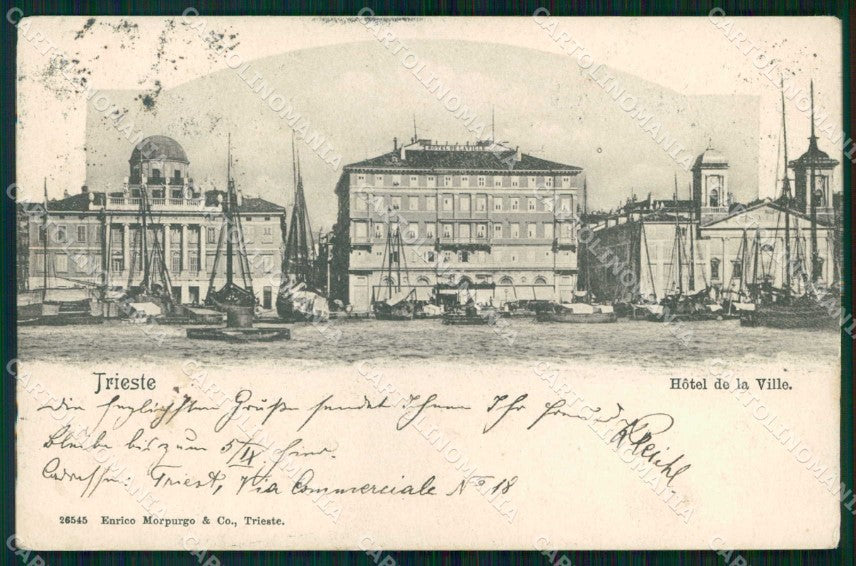 HÔTEL DE LA VILLE
Trieste
Hôtel de la Ville.
Die herzlichsten Grüße sendet Ihnen Ihr Freund
Reichl
Bleibe bis zum 5/IX hier.
Adresse: Triest, Via Commerciale No 18
26545 Enrico Morpurgo & Co., Trieste.
CARTOLINOMANIA